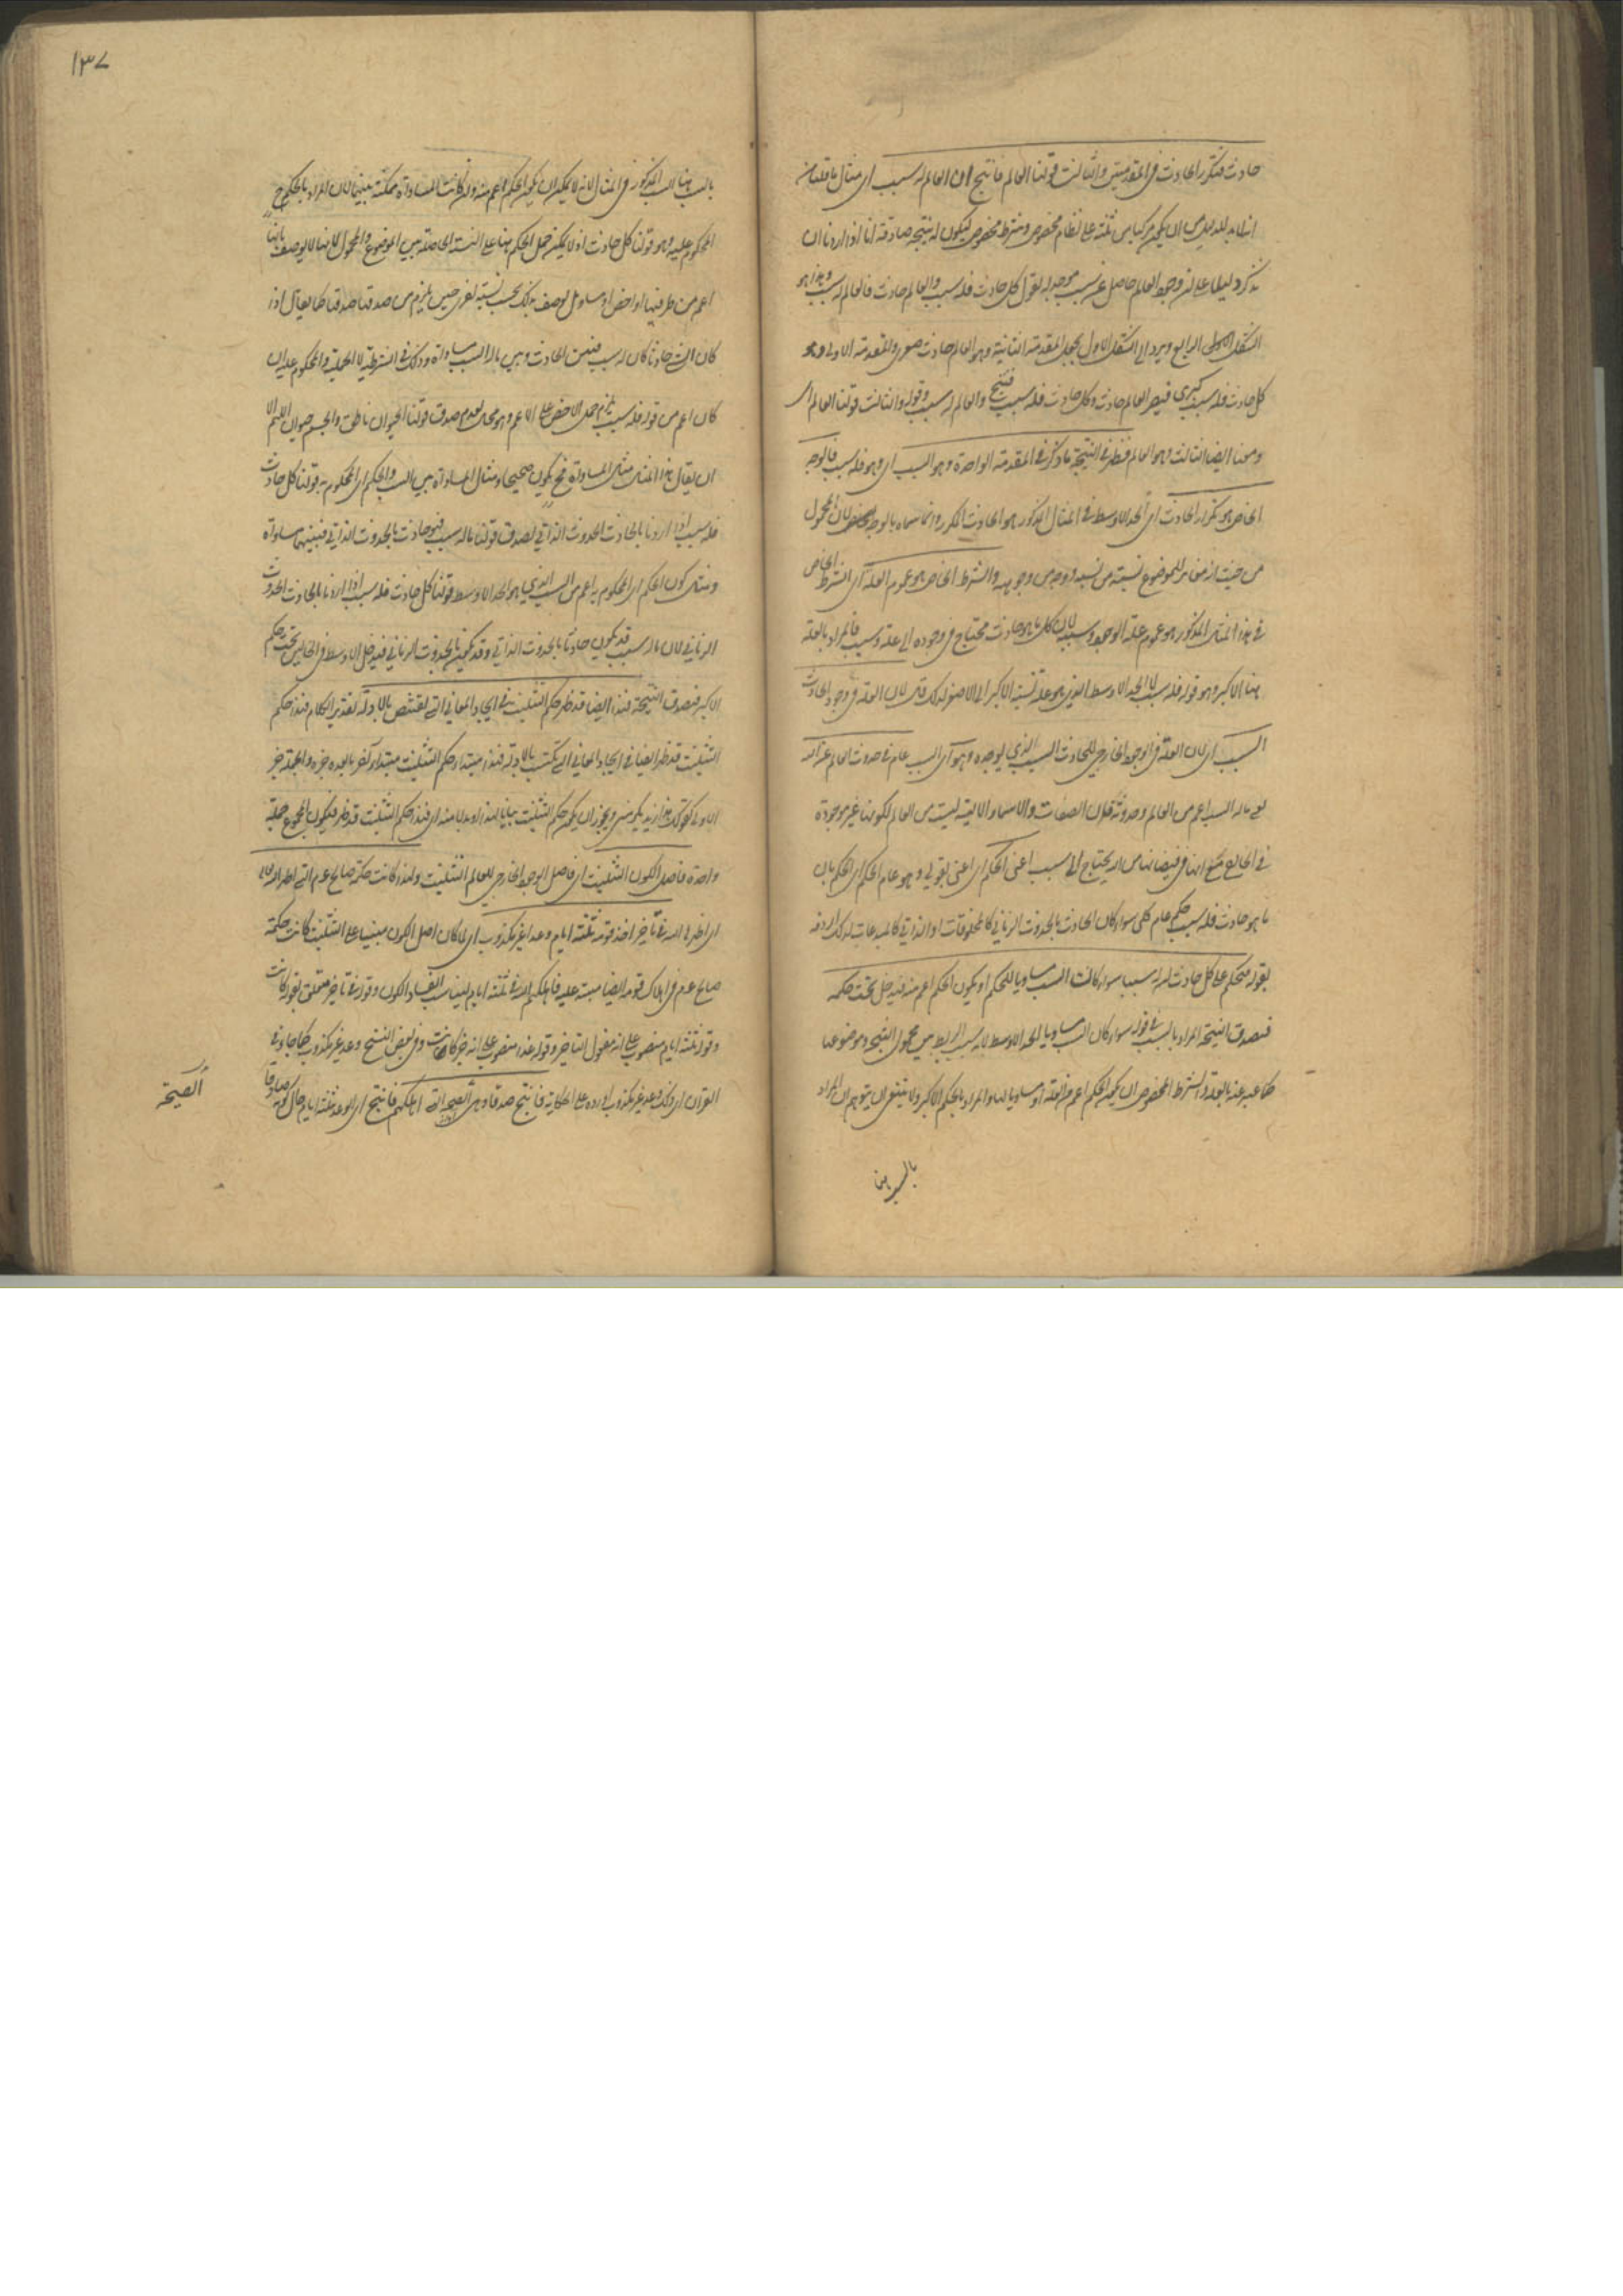 حادث فتكرر الحادث في المقدمتين والثالث قولنا العالم فانتج ان العالم له سبب اى مثال ما قلنا من
انه لابد للدليل من ان يكون مركبا من ثلثة على نظام مخصوص وشرط مخصوص ليكون له نتيجة صادقة انا اذا اردنا ان
نذكر دليلا على ان وجود العالم حاصل عن سبب موجد له نقول كل حادث فله سبب والعالم حادث فالعالم له سبب وهذا هو
الشكل الرابع ويرد الى الشكل الاول بجعل المقدمة الثانية وهو العالم حادث صغرى والمقدمة الاولى وهو
كل حادث فله سبب كبرى فيصير العالم حادث وكل حادث فله سبب فينتج والعالم له سبب وقوله والثالث قولنا العالم اى
ومعنا ايضا الثالث وهو العالم فظهر في النتيجة ما ذكر في المقدمة الواحدة وهو السبب اى وهو فله سبب فالوجه
الخاص هو تكرار الحادث اى الحد الاوسط في المثال المذكور هو الحادث المكرر وانما سماه بالوجه الخاص لان المحمول
من حيث انه مغاير للموضوع نسبة من نسبه ووجه من وجوهه والشرط الخاص هو عموم العلة اى الشرط الخاص
في هذا المثال المذكور هو عموم علة الوجود وسببه لان كل ما هو حادث محتاج في وجوده الى علة وسبب فالمراد بالعلة
هنا الاكبر وهو قوله فله سبب لا الحد الاوسط الذي هو علة نسبة الاكبر الى الاصغر لذلك قال لان العلة في وجود الحادث
السبب اى لان العلة في الوجود الخارجي للحادث السبب الذي يوجده وهو اى السبب عام في حدوث العالم عن الله
يعني ما له السبب اعم من العالم وحدوثه فان الصفات والاسماء الالهية ليست من العالم لكونها غير موجودة
في الخارج مع انها في فيضانها من الله يحتاج الى سبب اعنى الحكم اى اعنى بقولى وهو عام الحكم اى الحكم بان
ما هو حادث فله سبب حكم عام كلى سواء كان الحادث بالحدوث الزماني كالمخلوقات او الذاتي كالمبدعات لذلك اردفه
بقوله فنحكم على كل حادث ان له سببا سواء كانت السبب مساويا للحكم او يكون الحكم اعم منه فيدخل تحت حكمه
فتصدق النتيجة المراد بالسبب في قوله سواء كان السبب مساويا الحد الاوسط لانه سبب الربط بين محمول النتيجة وموضوعها
كما عبر عنه بالعلة والشرط المخصوص ان يكون الحكم اعم من العلة او مساويا لها والمراد بالحكم الاكبر ولا ينبغى ان يتوهم ان المراد
بالسبب هنا
١٣٧
بالسبب هنا السبب المذكور في المثال لانه لا يمكن ان يكون الحكم اعم منه وان كانت المساواة ممكنة بينهما لان المراد بالحكم ح
المحكوم عليه وهو قولنا كل حادث اذ لا يمكن حمل الحكم هنا على النسبة الحاصلة بين الموضوع والمحمول لانها لا يوصف بانها
اعم من طرفيها او اخص او مساو بل يوصف بذلك بحسب نسبة اخرى حين يلزم من صدقها صدقها كما يقال اذا
كان الشئ حادثا كان له سبب فبين الحادث وبين ما له السبب مساواة وذلك في الشرطية لا الحملية والمحكوم عليه ان
كان اعم من قوله فله سبب يلزم حمل الاخص على الاعم وهو محال لعدم صدق قولنا الحيوان ناطق والجسم حيوان اللهم الا
ان يقال هذا المثال مثال المساواة فح يكون صحيحا ومثال المساواة بين السبب والحكم اى المحكوم به قولنا كل حادث
فله سبب اذا اردنا بالحادث الحدوث الذاتي لصدق قولنا ما له سبب فهو حادث بالحدوث الذاتي فبينهما مساواة
ومثال كون الحكم اى المحكوم به اعم من السبب الذي هو الحد الاوسط قولنا كل حادث فله سبب اذا اردنا بالحادث الحدوث
الزماني لان ما له سبب قد يكون حادثا بالحدوث الذاتي وقد يكون بالحدوث الزماني فيدخل الاوسط في الحالين تحت حكم
الاكبر فتصدق النتيجة فهذا ايضا قد ظهر حكم التثليث في ايجاد المعاني التي تقتنص بالادلة تقدير الكلام فهذا حكم
التثليث قد ظهر ايضا في ايجاد المعاني التي تكتسب بالادلة فهذا مبتدا وحكم التثليث مبتدا آخر ما بعده خبره والجملة خبر
الاول كقولك هذا زيد يكرمني ويجوز ان يكون حكم التثليث بيانا لهذا او بدلا منه اى فهذا حكم التثليث قد ظهر فيكون المجموع جملة
واحدة فاصل الكون التثليث اى فاصل الوجود الخارجي للعالم التثليث ولهذا كانت حكمة صالح عدم التي اظهر الله
اى اظهرها الله في تأخير اخذ قومه ثلثة ايام وعدا غير مكذوب اى لما كان اصل الكون مبنيا على التثليث كانت حكمة
صالح عدم في اهلاك قومه ايضا مبنية عليه فاهلكهم الله في ثلثة ايام ليناسب الفساد الكون وقوله في تأخير متعلق بقوله كانت
وقوله ثلثة ايام منصوب على انه مفعول التاخير وقوله وعدا منصوب على انه خبر كانت وفي بعض النسخ وعد غير مكذوب كما جاء في
القران اى ذلك وعد غير مكذوب اورده على الحكاية فانتج صدقا وهى الصيحة التي اهلكهم فانتج اى الوعد ثلثة ايام حال كونه صادقا
الصيحة